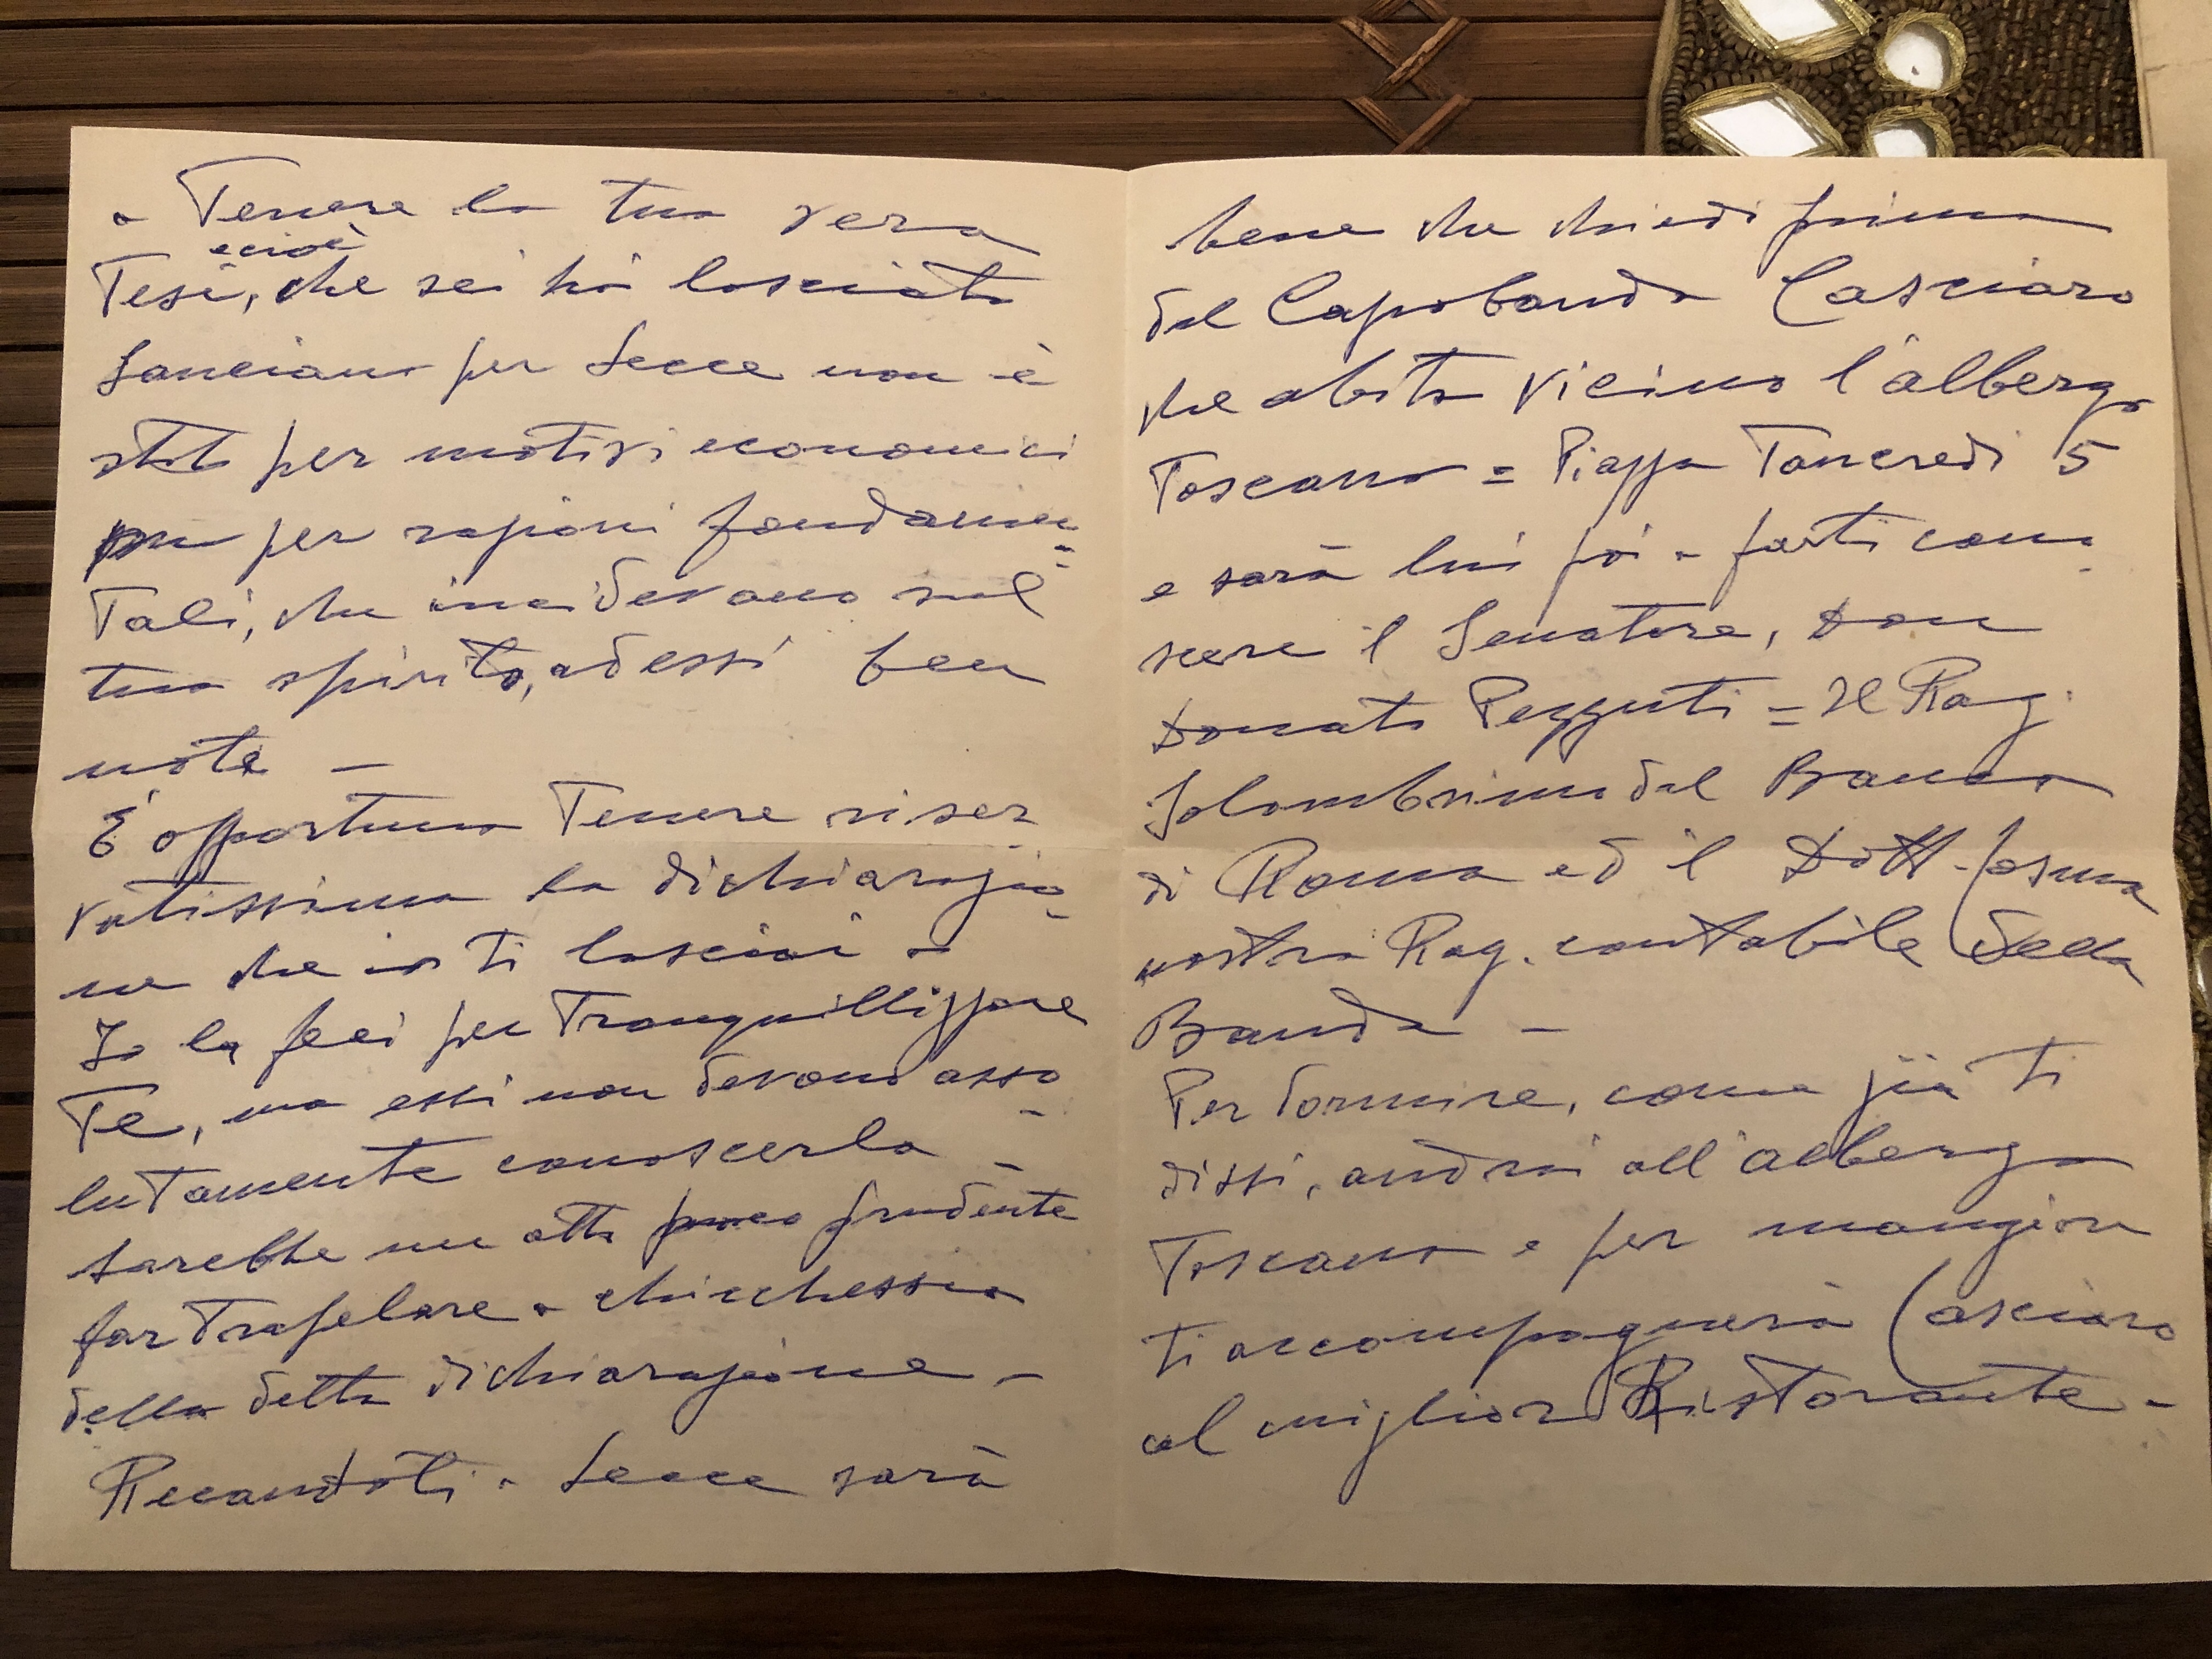 a Tenere la tua vera
e cioè
Tesi, che sei hai lasciato
Lanciano per Lecce non è
stato per motivi economici
ma per ragioni fondamen=
Tali, che incidevano sul
tuo spirito, ad essi ben
note -
È opportuno Tenere riser-
vatissima la dichiarazio-
ne che io ti lasciai a
Io la feci per Tranquillizzare
Te, ma essi non devono asso-
lutamente conoscerla -
sarebbe un atto poco prudente
far Trapelare a chicchessia
della detta dichiarazione -
Recandoti a Lecce sarà
bene che chiedi prima
del Capobanda Casciaro
che abita vicino l'albergo
Toscano = Piazza Tancredi 5
e sarà lui poi a farti cono-
scere il Senatore, Don
Donato Pezzuti = Il Rag.
Solombrino del Banco
di Roma ed il Dott. Cosma
nostro Rag. contabile della
Banda -
Per dormire, come già ti
dissi, andrai all'albergo
Toscano e per mangiare
ti accompagnerà Casciaro
al miglior Ristorante -